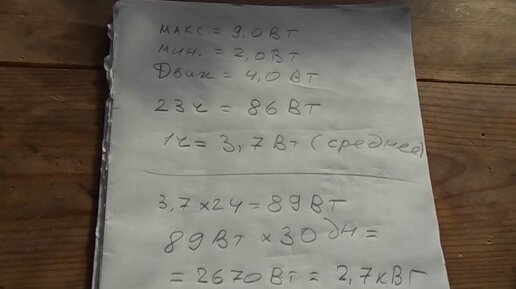 макс = 9,0 Вт
мин. = 2,0 Вт
Движ = 4,0 Вт
23ч = 86 Вт
1ч = 3,7 Вт (среднее)
3,7 × 24 = 89 Вт
89 Вт × 30 дн =
= 2670 Вт = 2,7 кВт